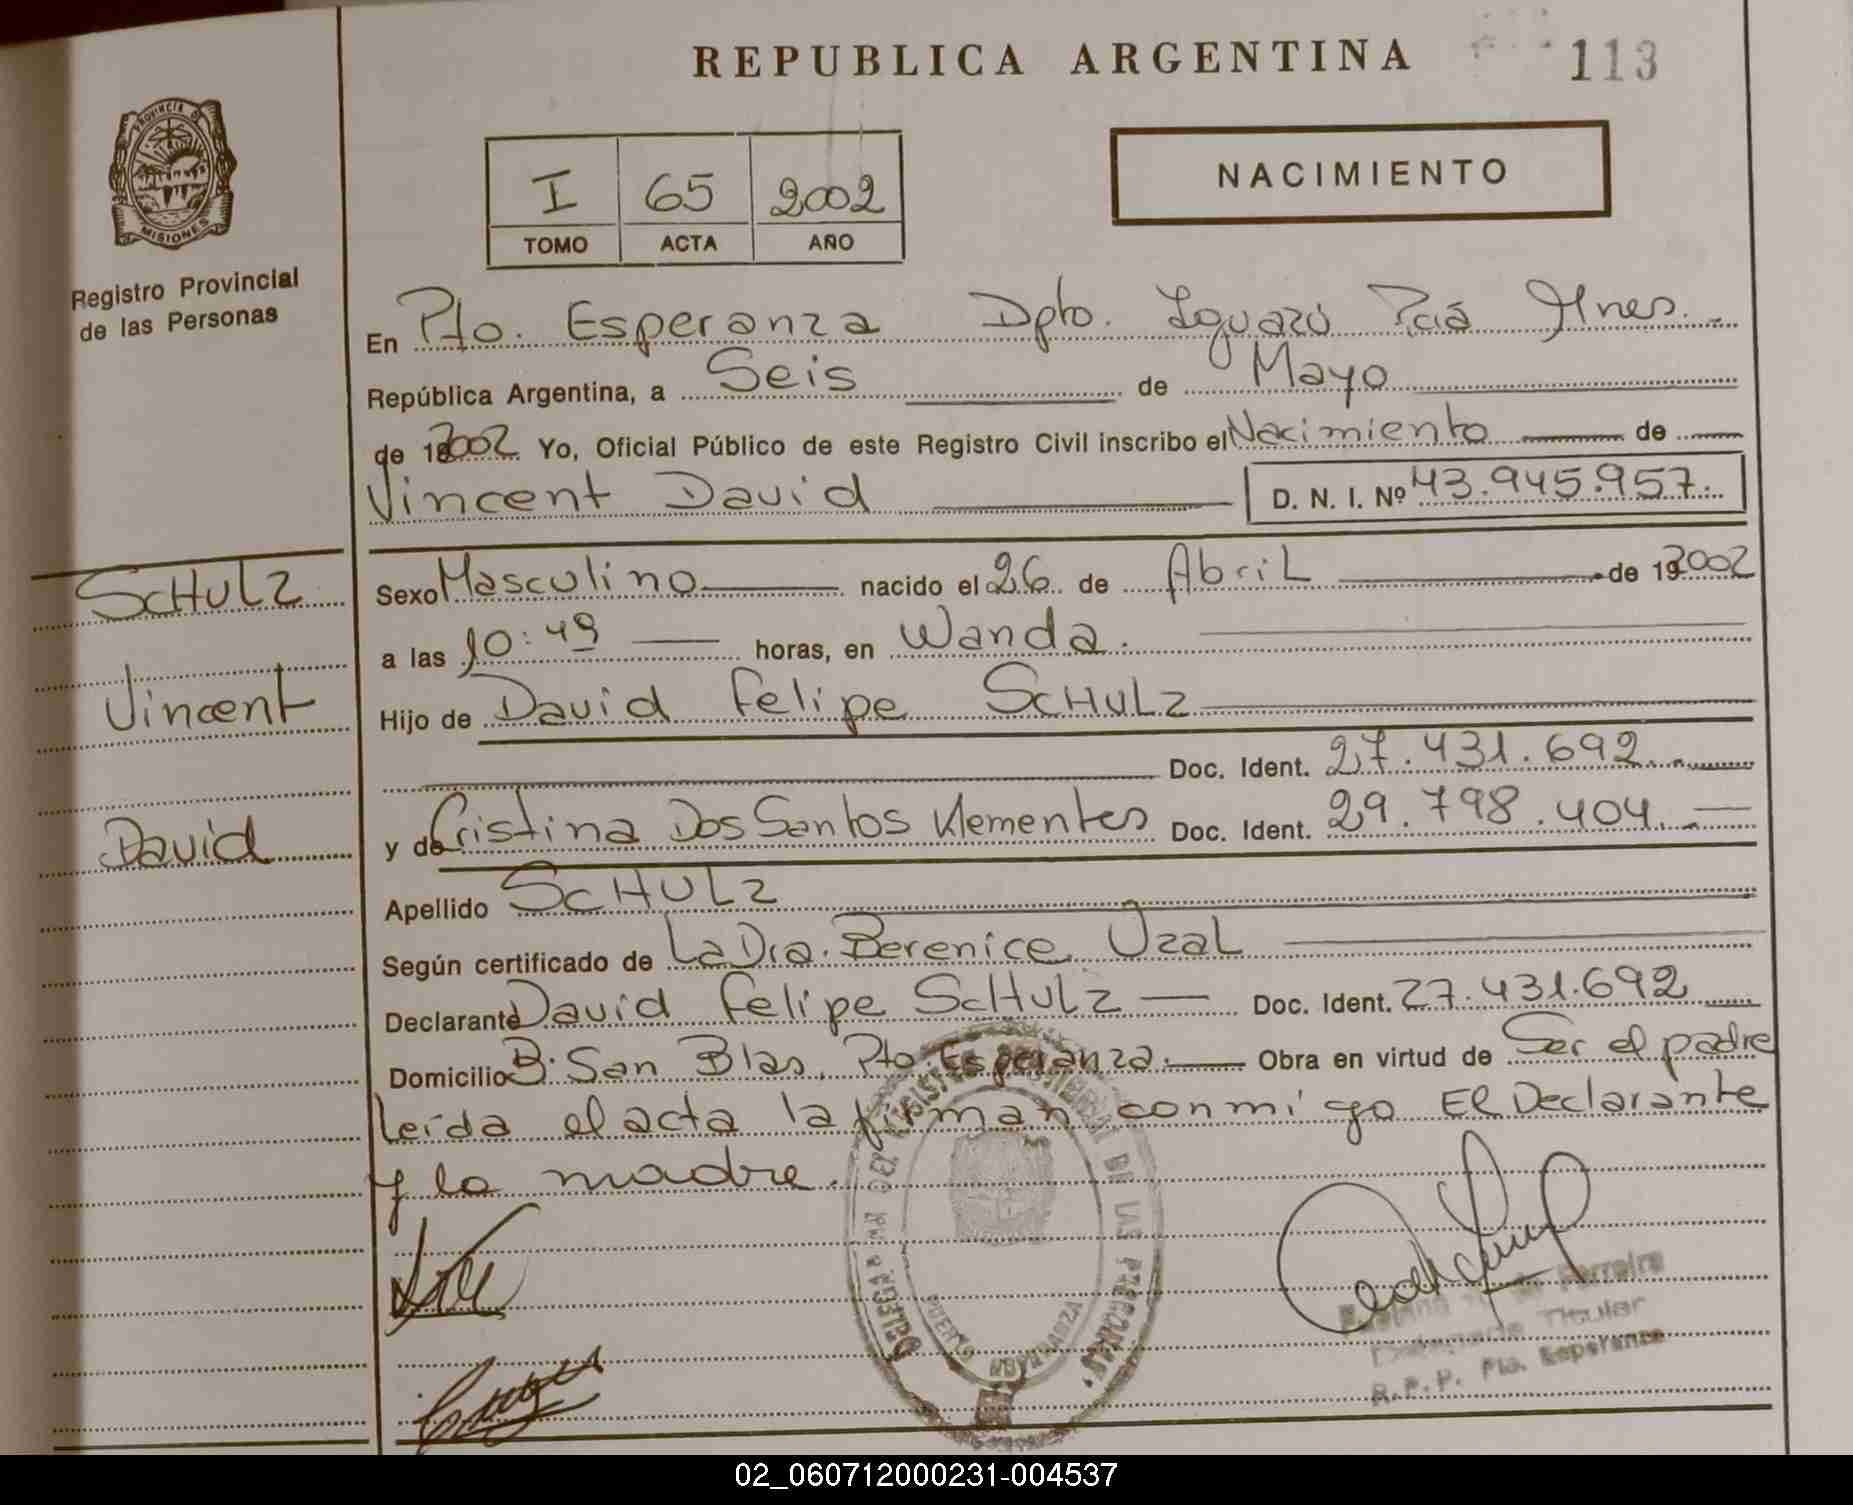 REPUBLICA ARGENTINA
113
PROVINCIA DE
MISIONES
Registro Provincial
de las Personas
I 65 2002
TOMO ACTA AÑO
NACIMIENTO
En Pto. Esperanza Dpto. Iguazú Pcia Mnes.
República Argentina, a Seis de Mayo
de 2002 Yo, Oficial Público de este Registro Civil inscribo el Nacimiento de
Vincent David D. N. I. Nº 43.945.957.
SCHULZ
Vincent
David
Sexo Masculino nacido el 26 de Abril de 192002
a las 10:49 horas, en Wanda.
Hijo de David Felipe SCHULZ
Doc. Ident. 27.431.692.
y de Cristina Dos Santos Klementes Doc. Ident. 29.798.404.
Apellido SCHULZ
Según certificado de La Dra. Berenice Uzal
Declarante David Felipe SCHULZ Doc. Ident. 27.431.692
Domicilio B: San Blas, Pto Esperanza. Obra en virtud de Ser el padre
leída el acta la firman conmigo El Declarante
y la madre.
REGISTRO PROVINCIAL DE LAS PERSONAS
PUERTO ESPERANZA
Ferreira
Titular
R.P.P. Pto. Esperanza
02_060712000231-004537